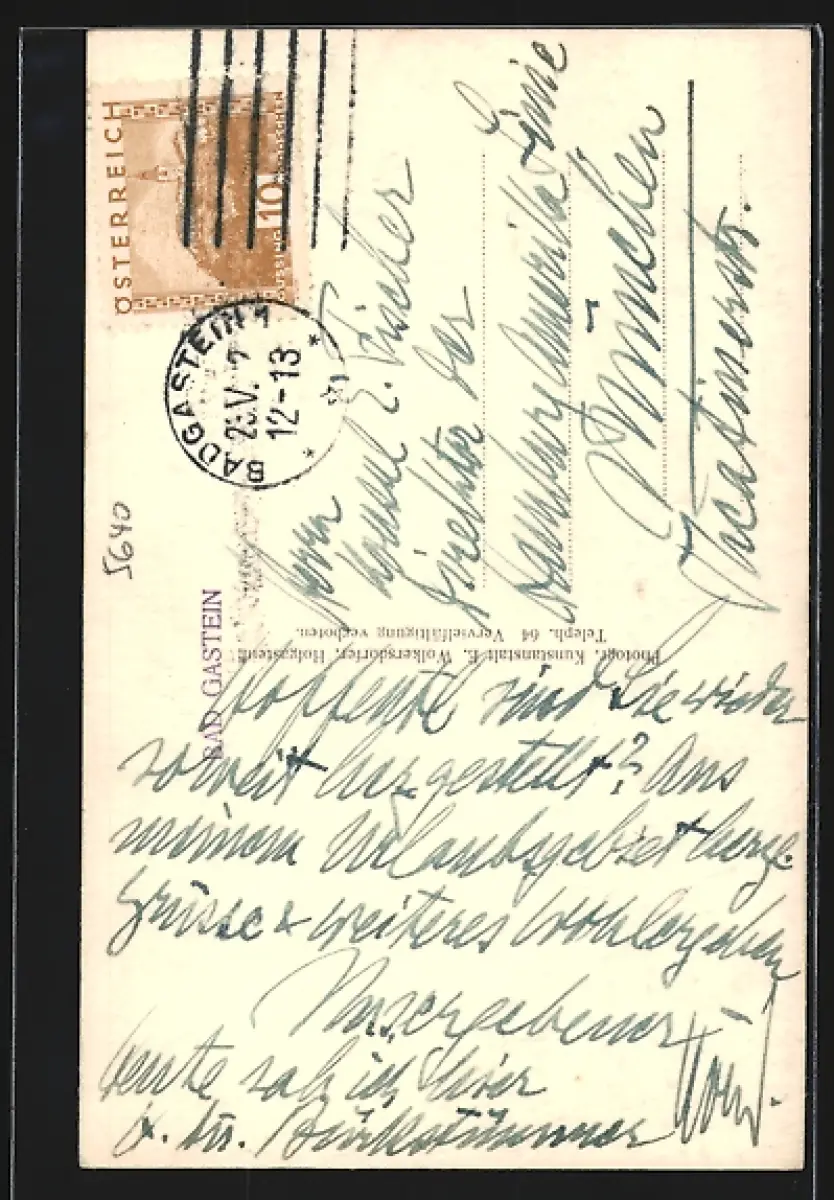 ÖSTERREICH
10 GROSCHEN
GÜSSING
BADGASTEIN 1
12-13
5640
BAD GASTEIN
Photogr. Kunstanstalt E. Wolkersdorfer, Hofgastein
Teleph. 64 Vervielfältigung verboten.
Herrn
Konsul E. Fischer
Direktor der
Hamburg Amerika Linie
München
Theatinerstr.
Hoffentl. sind Sie wieder
soweit hergestellt? Aus
meinem Urlaubsgebiet herzl.
Grüsse & weiteres Wohlergehen
Ihr ergebener
heute sah ich hier